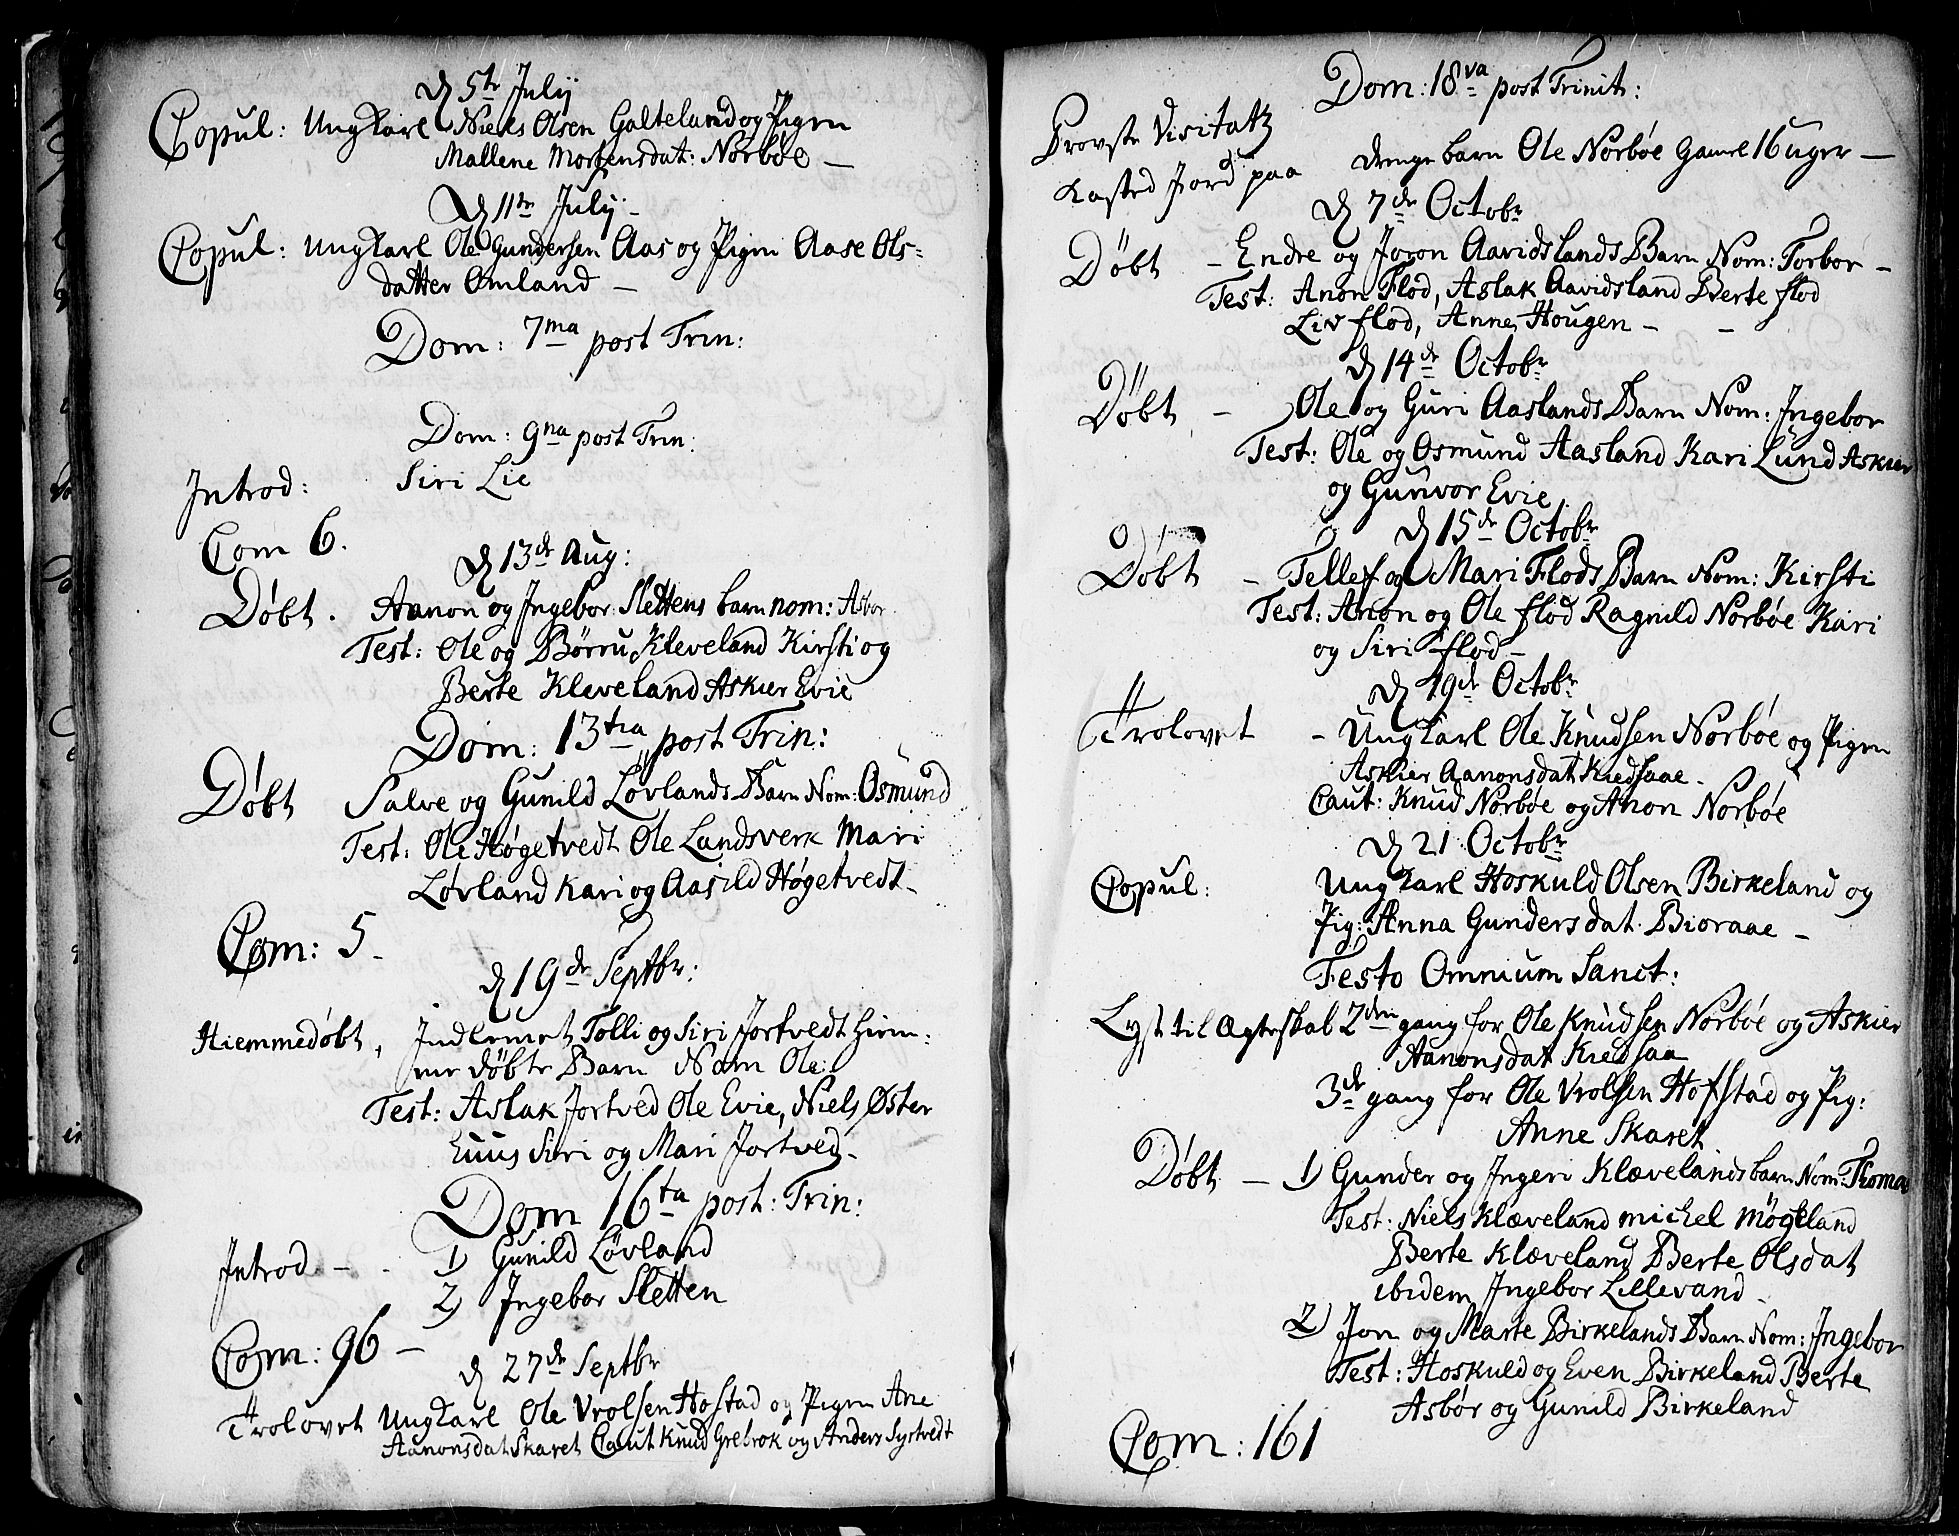 d 5te July
Copul: Ungkarl Niels Olsen Galteland og Pigen
Mallene Mortensdat: Norbøe —
d 11te July -
Copul: Ungkarl Ole Gundersen Aas og Pigen Aase Ols=
datter Omland —
Dom: 7ma post Trin:
Dom: 9na post Trin:
Introd: Siri Lie
Com 6.
d 13de Aug:
Døbt. Aanon og Ingebor Slettens barn nom: Asbor
Test: Ole og Børru Kleveland Kirsti og
Berte Kleveland Askier Evie
Dom: 13tia post Trin:
Døbt Salve og Gunild Løvlands Barn Nom: Osmund
Test: Ole Høgetvedt Ole Landsverk Mari
Løvland Kari og Aasild Høgetvedt -
Com: 5 -
d 19de Septbr:
Hiemmedøbt, Indlemet Tolli og Siri Jortvedt hiem=
me døbte Barn Nom Ole
Test: Aslak Jortved Ole Evie, Niels Øster
Siri og Mari Jortved -
Dom 16ta post: Trin:
Introd - - 1) Gunild Løvland
2) Ingebor Sletten
Com: 96 —
d 27de Septbr
Trolovet Ungkarl Ole Vrolsen Hofstad og Pigen Ane
Aanonsdat Skaret Caut Knud Grebrok og Anders Systvedt
Dom: 18va post Trinit:
Provste Visitatz
Kasted Jord paa drenge barn Ole Norbøe gamel 16 uger —
d 7de Octobr
Døbt - Endre og Joron Aavidslands Barn Nom: Torbor -
Test: Anon Flod, Aslak Aavidsland Berte flod
Liv flod, Anne Hougen - -
d 14de Octobr
Døbt - Ole og Guri Aaslands Barn Nom: Ingebor
Test: Ole og Osmund Aasland Kari Lund Askier
og Gunvor Evie
d 15de Octobr
Døbt - Tellef og Mari Flods Barn Nom: Kirsti
Test: Anon og Ole flod Ragnild Norbøe Kari
og Siri flod -
d 19de Octobr
Trolovet - Ungkarl Ole Knudsen Norbøe og Pigen
Askier Aanonsdat Kiedsaae -
Caut: Knud Norbøe og Anon Norbøe
d 21 Octobr
Copul: Ungkarl Hoskuld Olsen Birkeland og
Pig: Anna Gundersdat Bioraae -
Festo Omnium Sanct:
Lyst til Ægteskab 2den gang for Ole Knudsen Norbøe og Askier
Aanonsdat Kiedsaa
3de gang for Ole Vrolsen Hofstad og Pig:
Anne Skaret
Døbt - 1) Gunder og Ingeri Klævelands barn Nom: Thomas
Test: Niels Klæveland Michel Møgland
Berte Klæveland Berte Olsdat
ibidem Ingebor Lillevand -
2) Jon og Marte Birkelands Barn Nom: Ingebor
Test: Hoskuld og Even Birkeland Berte
Asbør og Gunild Birkeland
Com: 161